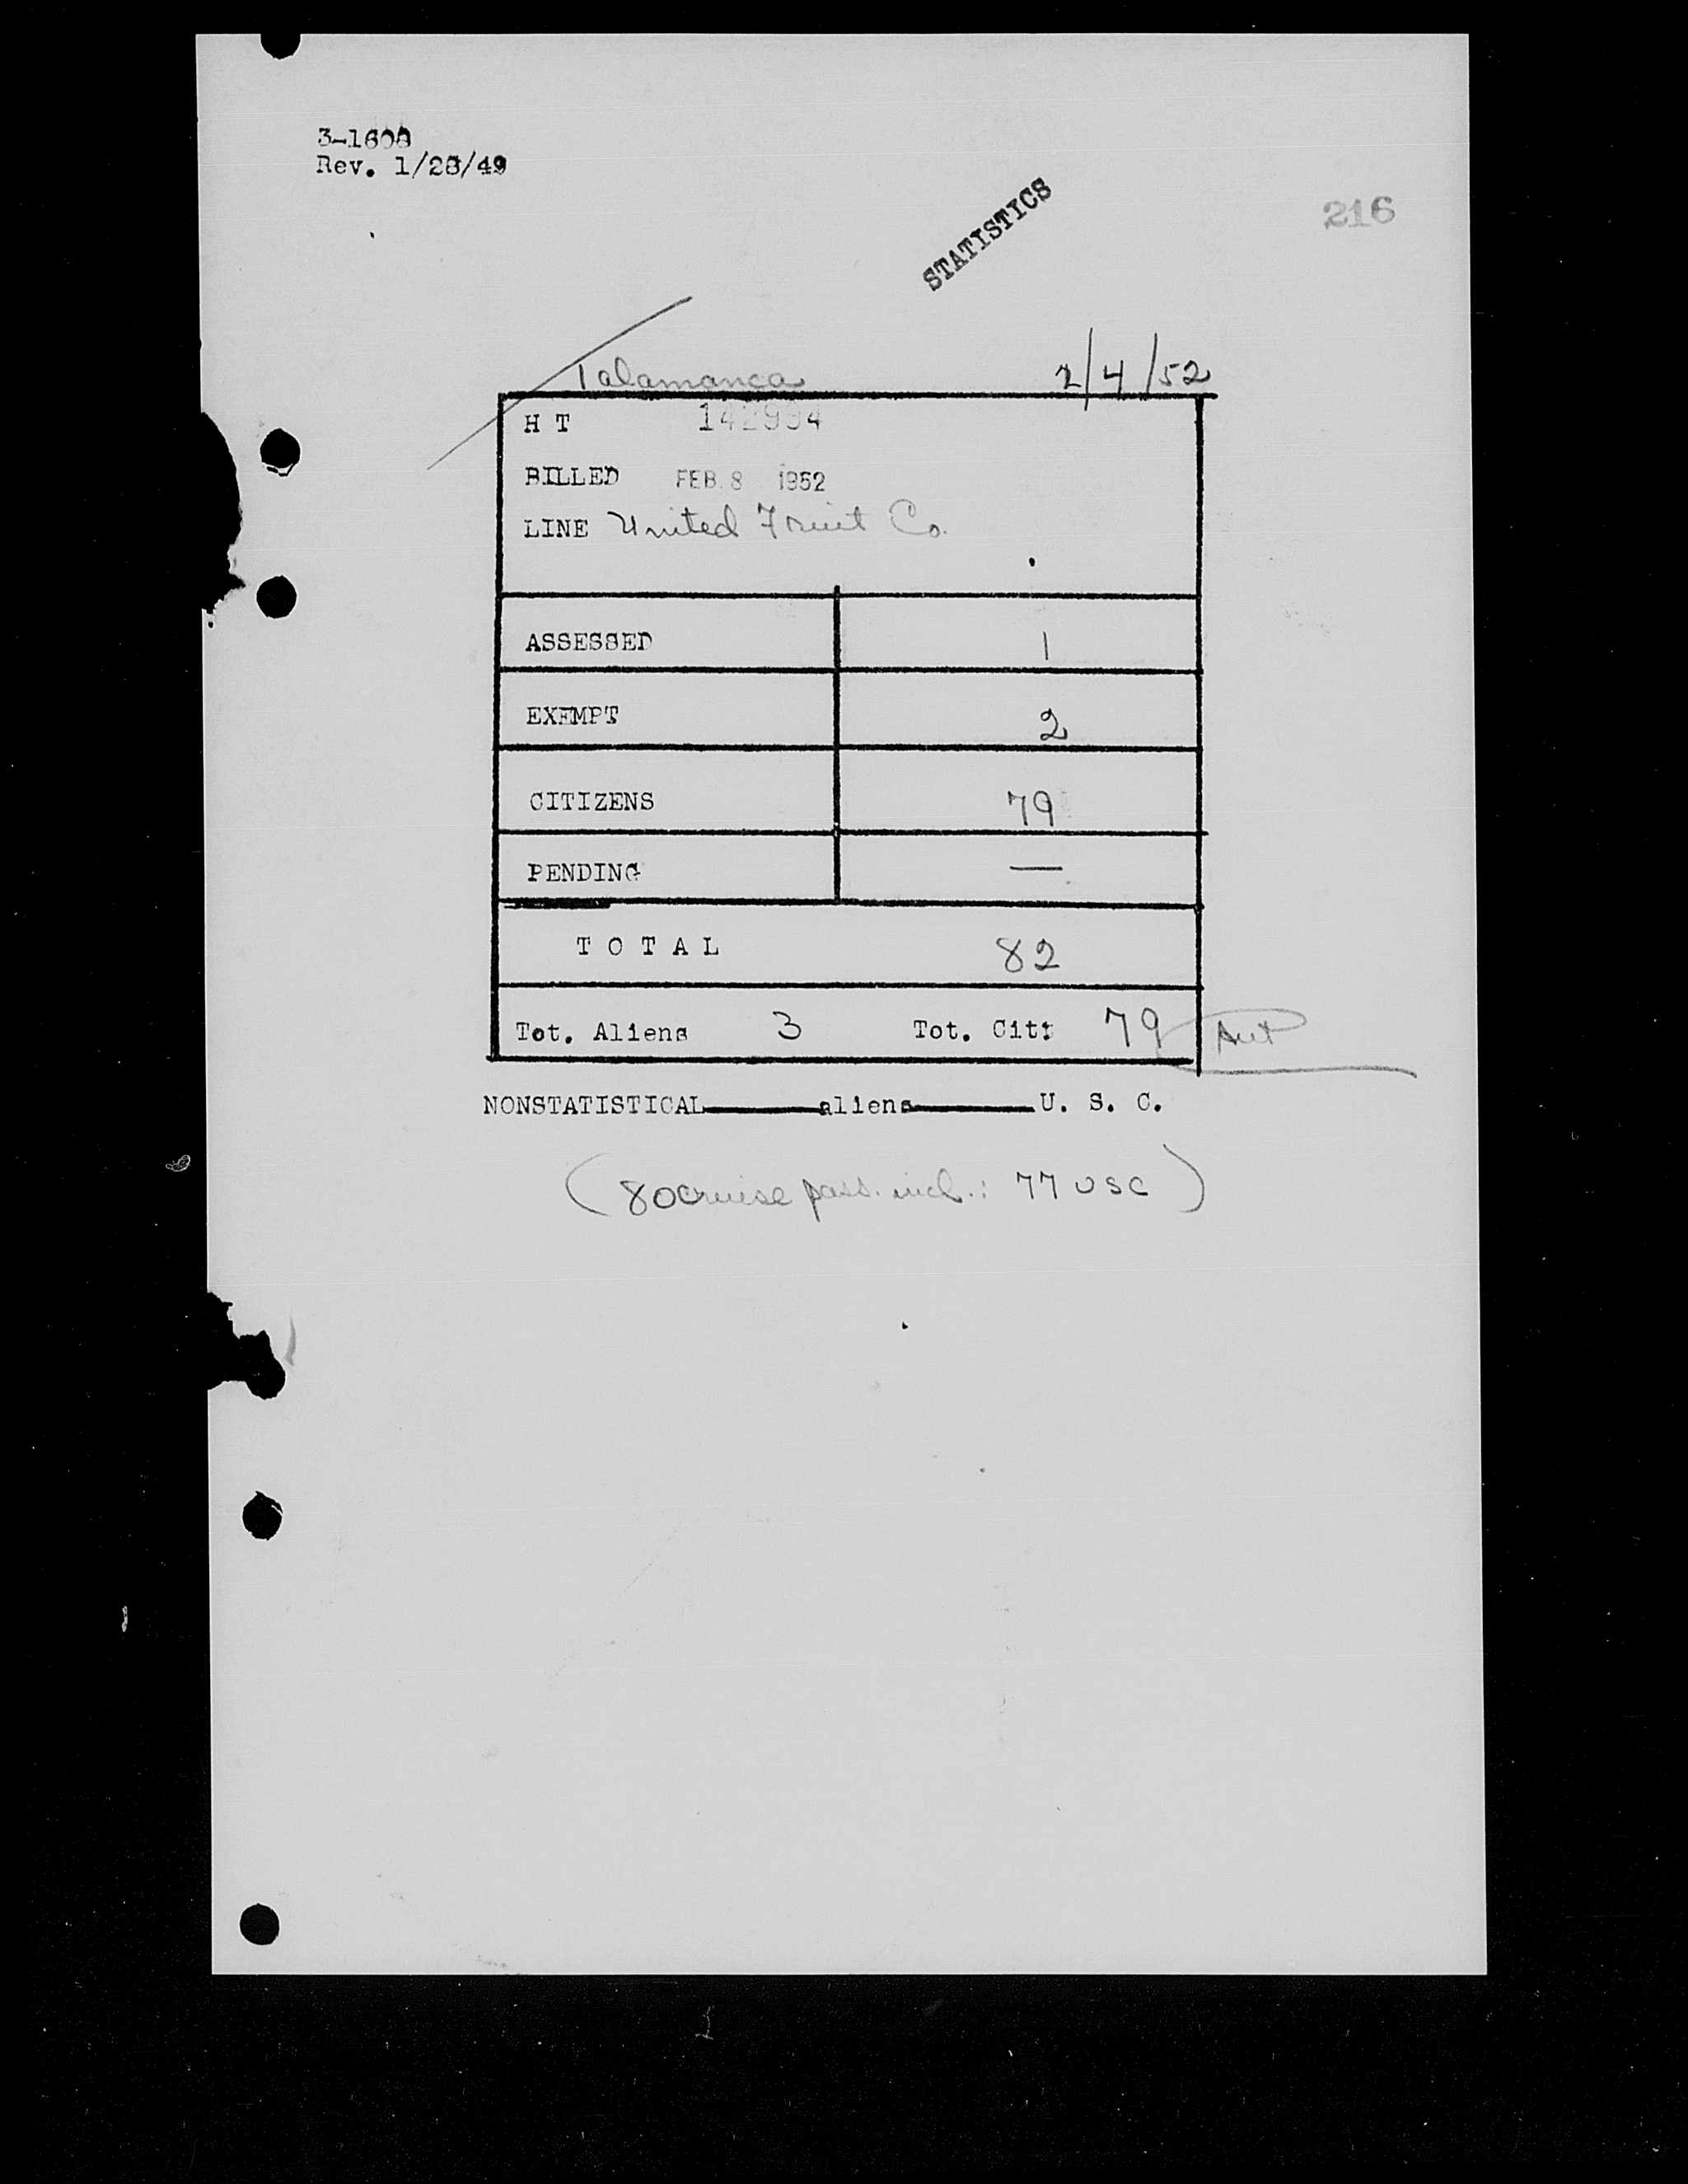 3-1608
Rev. 1/28/49
STATISTICS
216
Talamanca 2/4/52
H T 142994
BILLED FEB. 8 1952
LINE United Fruit Co.
ASSESSED 1
EXEMPT 2
CITIZENS 79
PENDING —
T O T A L 82
Tot. Aliens 3 Tot. Cit: 79
NONSTATISTICAL aliens U. S. C.
(80 cruise pass. incl.: 77 USC)